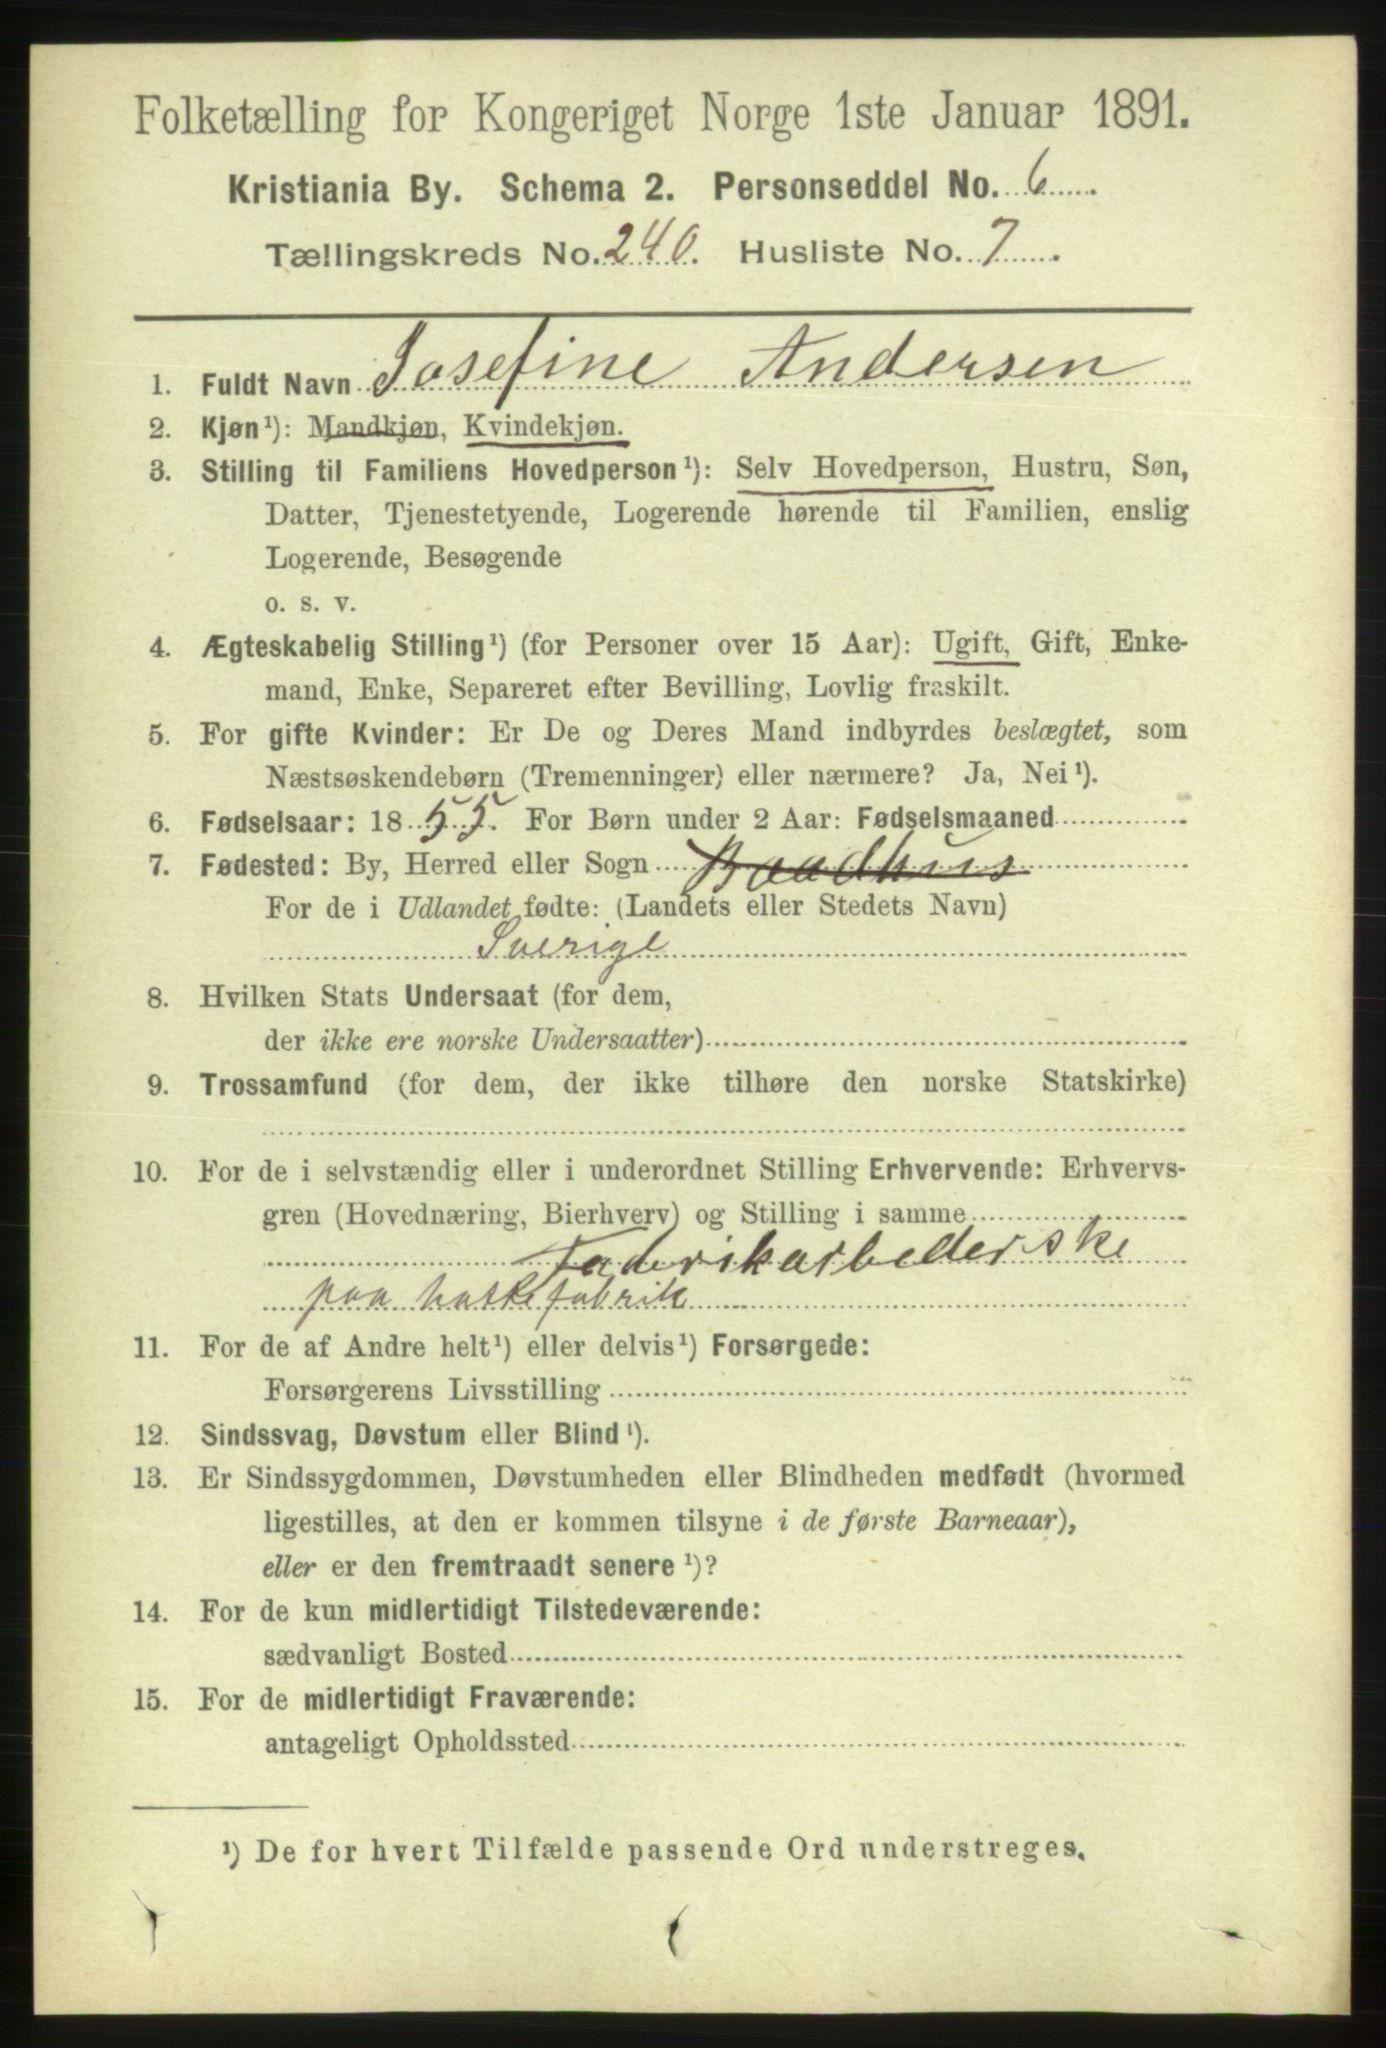 Folketælling for Kongeriget Norge 1ste Januar 1891.
Kristiania By. Schema 2. Personseddel No. 6
Tællingskreds No. 240. Husliste No. 7
1. Fuldt Navn Josefine Andersen
2. Kjøn¹): Mandkjøn, Kvindekjøn.
3. Stilling til Familiens Hovedperson¹): Selv Hovedperson, Hustru, Søn,
Datter, Tjenestetyende, Logerende hørende til Familien, enslig
Logerende, Besøgende
o. s. v.
4. Ægteskabelig Stilling¹) (for Personer over 15 Aar): Ugift, Gift, Enke-
mand, Enke, Separeret efter Bevilling, Lovlig fraskilt.
5. For gifte Kvinder: Er De og Deres Mand indbyrdes beslægtet, som
Næstsøskendebørn (Tremenninger) eller nærmere? Ja, Nei¹).
6. Fødselsaar: 1855. For Børn under 2 Aar: Fødselsmaaned
7. Fødested: By, Herred eller Sogn Baadhus
For de i Udlandet fødte: (Landets eller Stedets Navn)
Sverige
8. Hvilken Stats Undersaat (for dem,
der ikke ere norske Undersaatter)
9. Trossamfund (for dem, der ikke tilhøre den norske Statskirke)
10. For de i selvstændig eller i underordnet Stilling Erhvervende: Erhvervs-
gren (Hovednæring, Bierhverv) og Stilling i samme
Faderikarbeiderske
paa fabrik
11. For de af Andre helt¹) eller delvis¹) Forsørgede:
Forsørgerens Livsstilling
12. Sindssvag, Døvstum eller Blind¹).
13. Er Sindssygdommen, Døvstumheden eller Blindheden medfødt (hvormed
ligestilles, at den er kommen tilsyne i de første Barneaar),
eller er den fremtraadt senere¹)?
14. For de kun midlertidigt Tilstedeværende:
sædvanligt Bosted
15. For de midlertidigt Fraværende:
antageligt Opholdssted
¹) De for hvert Tilfælde passende Ord understreges.